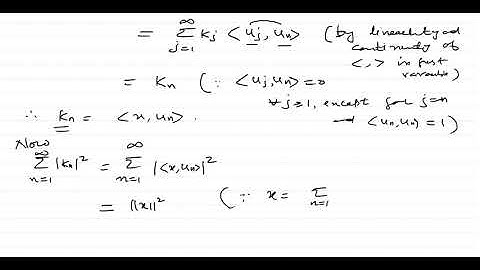 = ∞∑j=1 kj <uj, un> (by linearity and
continuity of
< , > in first
variable)
= kn (∵ <uj, un> = 0
∀ j ≥ 1, except for j=n
<un, un> = 1)
∴ kn = <x, un> .
Now
∞∑n=1 |kn|² = ∞∑n=1 |<x, un>|²
= ||x||² (∵ x = ∑n=1